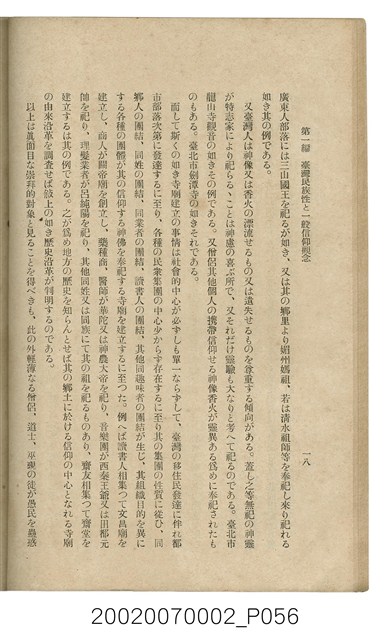 第一編　臺灣民族性と一般信仰觀念
一八
廣東人部落には三山國王を祀るが如き、又は其の鄕里より媚州媽祖、若は淸水祖師等を奉祀し來り祀れる
如き其の例である。
又臺灣人は神像又は香火の漂流せるもの又は遺失せるものを尊重する傾向がある。蓋し之等無祀の神靈
が特志家により祀らるゝことは神慮の喜ぶ所で、又それだけ靈驗も大なりと考へて祀るのである。臺北市
龍山寺觀音の如きその例である。又僧侶其他個人の携帶信仰せる神像香火が靈異ある爲めに奉祀されたも
のもある。臺北市劍潭寺の如きそれである。
而して斯くの如き寺廟建立の事情は社會的中心が必ずしも單一ならずして、臺灣の移住民發達に伴れ都
市部落次第に發達するに至り、各種の民衆集團の中心少からず存在するに至り其の集團の性質に從ひ、同
鄕人の團結、同姓の團結、同業者の團結、讀書人の團結、其他同趣味者の團結が生じ、其組織目的を異に
する各種の團體が其の信仰する神佛を奉祀する寺廟を建立するに至つた。例へば讀書人相集つて文昌廟を
建立し、商人が關帝廟を創立し、藥種商、醫師が華陀又は神農大帝を祀り、音樂團が西秦王爺又は田都元
帥を祀り、理髮業者が呂純陽を祀り、其他同姓又は同族にて其の祖を祀るものあり、齋友相集つて齋堂を
建立するは其の例である。之が爲め地方の歷史を知らんとせば其の鄕土に於ける信仰の中心となれる寺廟
の由來沿革を調査せば敍上の如き歷史沿革が判明するのである。
以上は眞面目な崇拜的對象と見ることを得べきも、此の外輕薄なる僧侶、道士、巫覡の徒が愚民を蠱惑
20020070002_P056